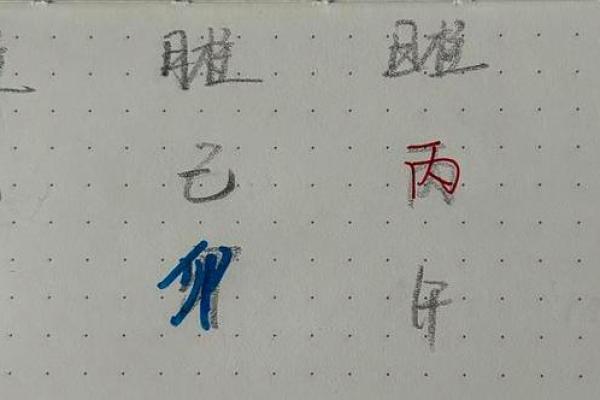 月柱 日柱
己 丙
卯 午